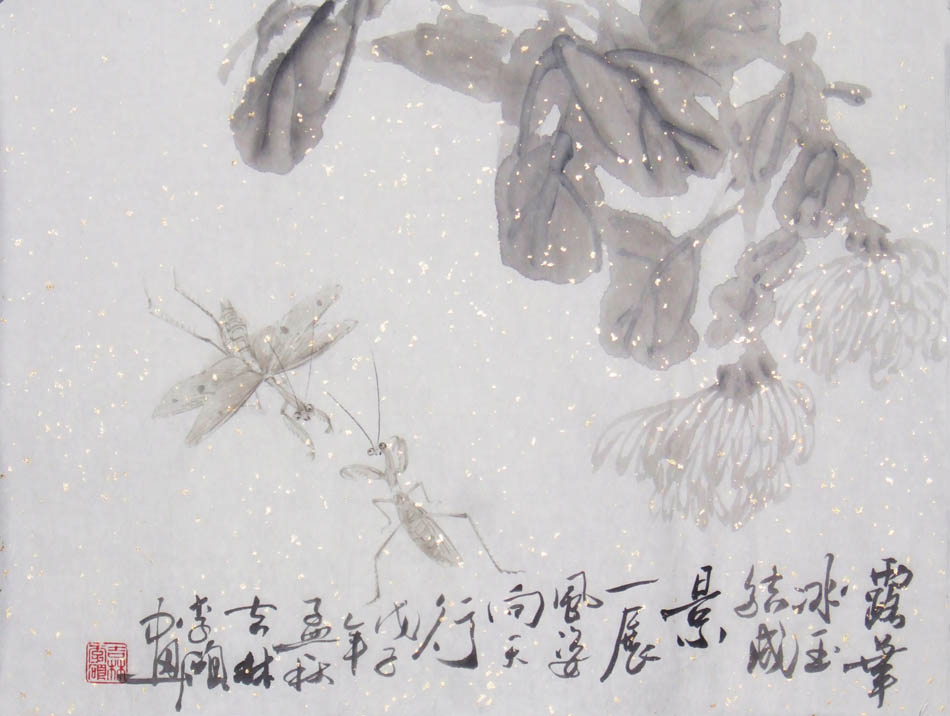 華
冰玉
結成
景
一展
風姿
向天
行
戊子
年
孟秋
吉林
李碩
吉林
李碩